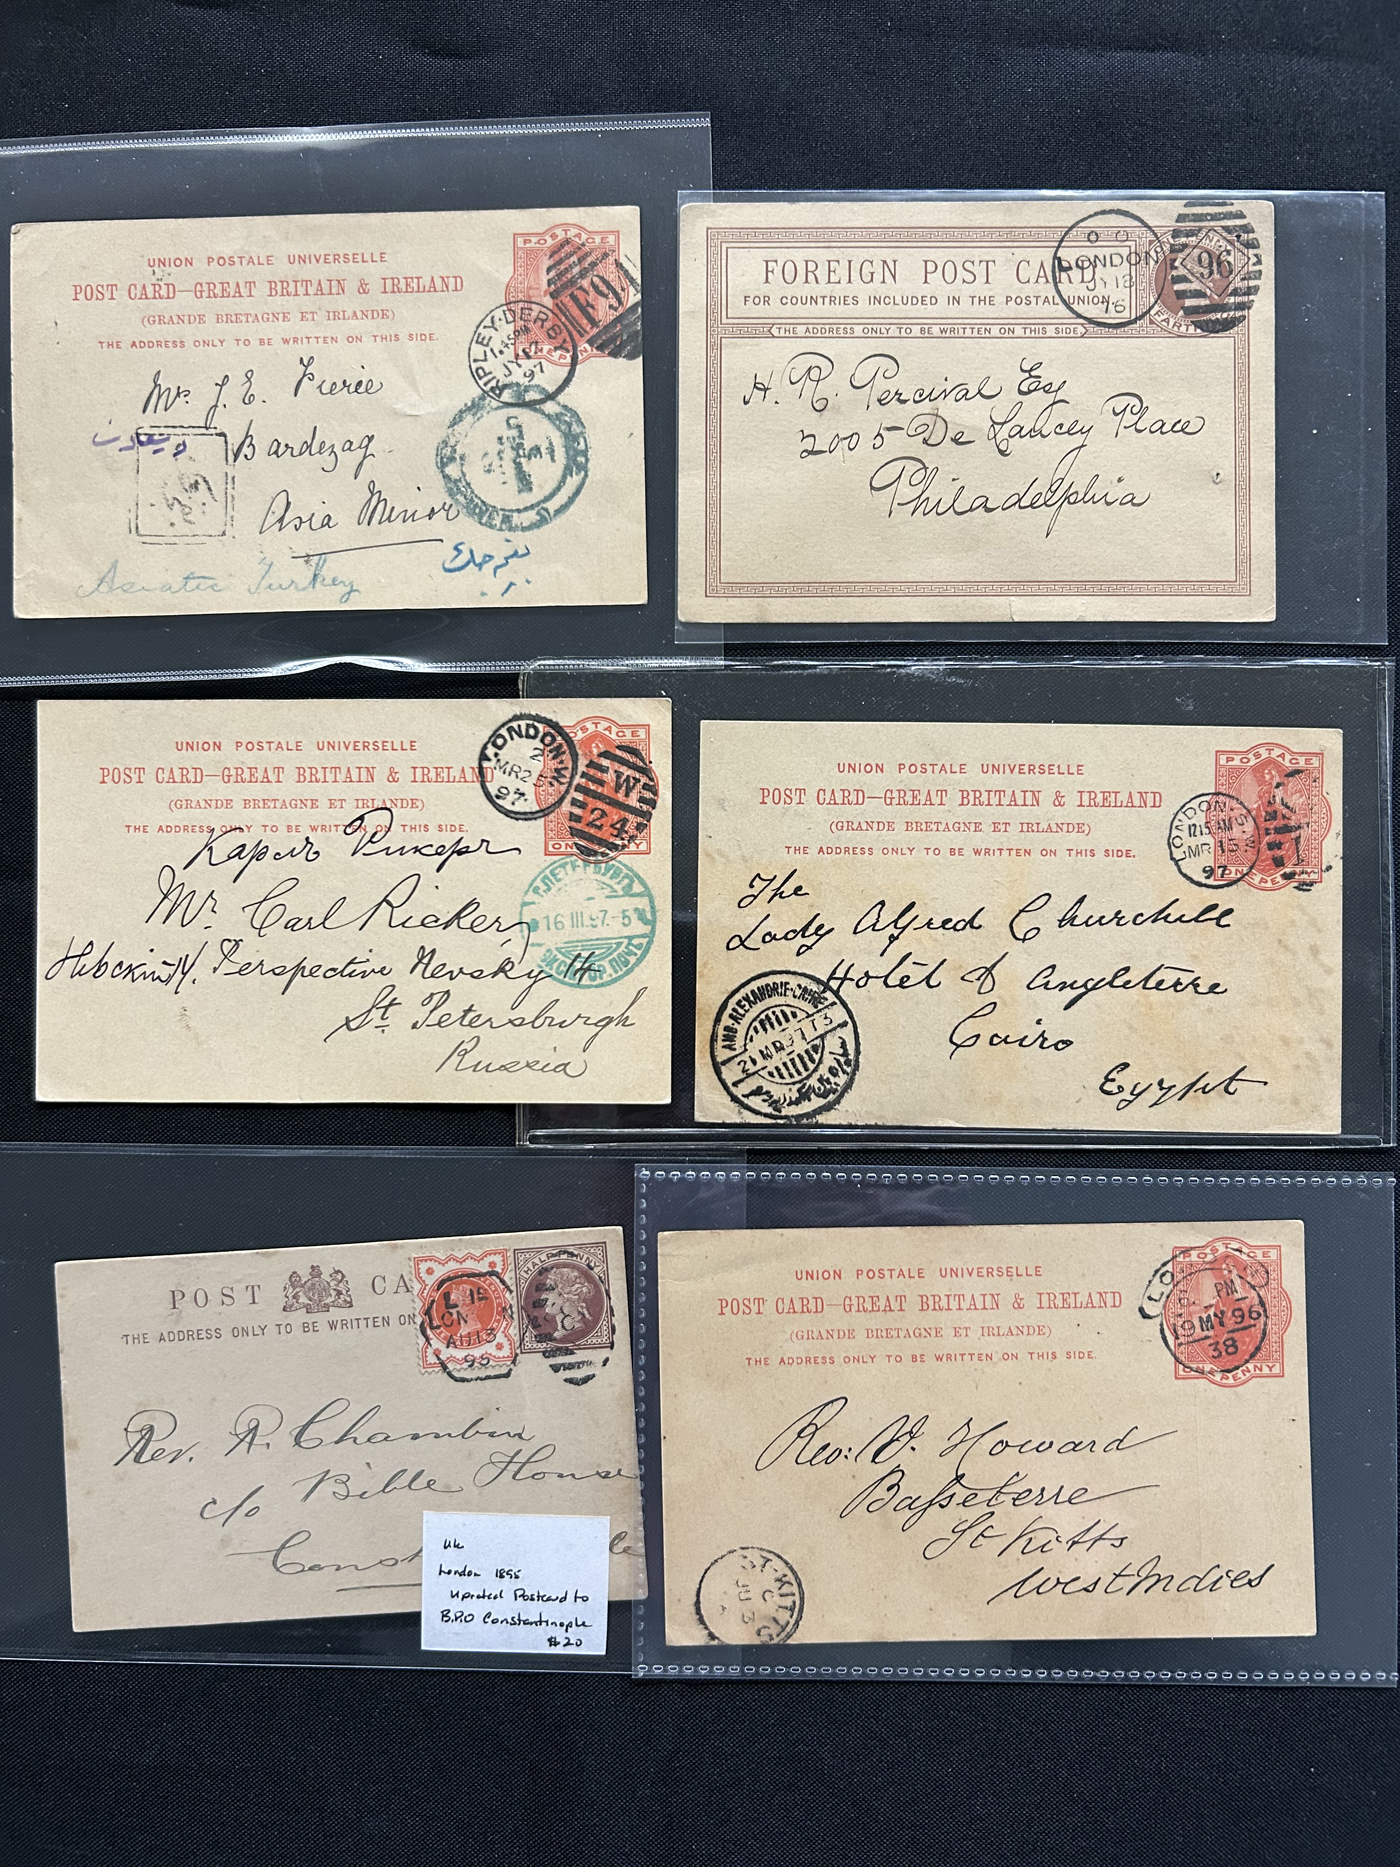 UNION POSTALE UNIVERSELLE
POST CARD—GREAT BRITAIN & IRELAND
(GRANDE BRETAGNE ET IRLANDE)
THE ADDRESS ONLY TO BE WRITTEN ON THIS SIDE.
POSTAGE
ONE PENNY
F91
RIPLEY·DERBY
1.45PM
JY 17
97
Mr. J. E. Pierce
Bardezag
Asia Minor
Asiatic Turkey
FOREIGN POST CARD
FOR COUNTRIES INCLUDED IN THE POSTAL UNION.
THE ADDRESS ONLY TO BE WRITTEN ON THIS SIDE.
LONDON
JY 18
76
96
H. R. Percival Esq
2005 De Lancey Place
Philadelphia
UNION POSTALE UNIVERSELLE
POST CARD—GREAT BRITAIN & IRELAND
(GRANDE BRETAGNE ET IRLANDE)
THE ADDRESS ONLY TO BE WRITTEN ON THIS SIDE.
POSTAGE
LONDON·W
2
MR 2
97
W
24
Карлъ Рикеръ
Mr. Carl Ricker,
Невскій 14. Perspective Nevsky 14
St. Petersburgh
Russia
С.ПЕТЕРБУРГЪ
16 III.97.-5
ЭКСПЕД. ГОР. ПОЧТ.
UNION POSTALE UNIVERSELLE
POST CARD—GREAT BRITAIN & IRELAND
(GRANDE BRETAGNE ET IRLANDE)
THE ADDRESS ONLY TO BE WRITTEN ON THIS SIDE.
POSTAGE
ONE PENNY
LONDON·S.W.
12 15 AM
MR 15
97
The
Lady Alfred Churchill
Hotel d'Angleterre
Cairo
Egypt
AMB·ALEXANDRIE-CAIRE
21 MR 97 T3
POST CA
THE ADDRESS ONLY TO BE WRITTEN ON
HALFPENNY
AU 13
95
Rev. R. Chambin
c/o Bible House
Const
le
UK
London 1895
Uprated Postcard to
B.P.O Constantinople
$20
UNION POSTALE UNIVERSELLE
POST CARD—GREAT BRITAIN & IRELAND
(GRANDE BRETAGNE ET IRLANDE)
THE ADDRESS ONLY TO BE WRITTEN ON THIS SIDE.
POSTAGE
ONE PENNY
PM
MY 96
38
Rev: V. Howard
Basseterre
St Kitts
West Indies
ST·KITTS
C
JU 3